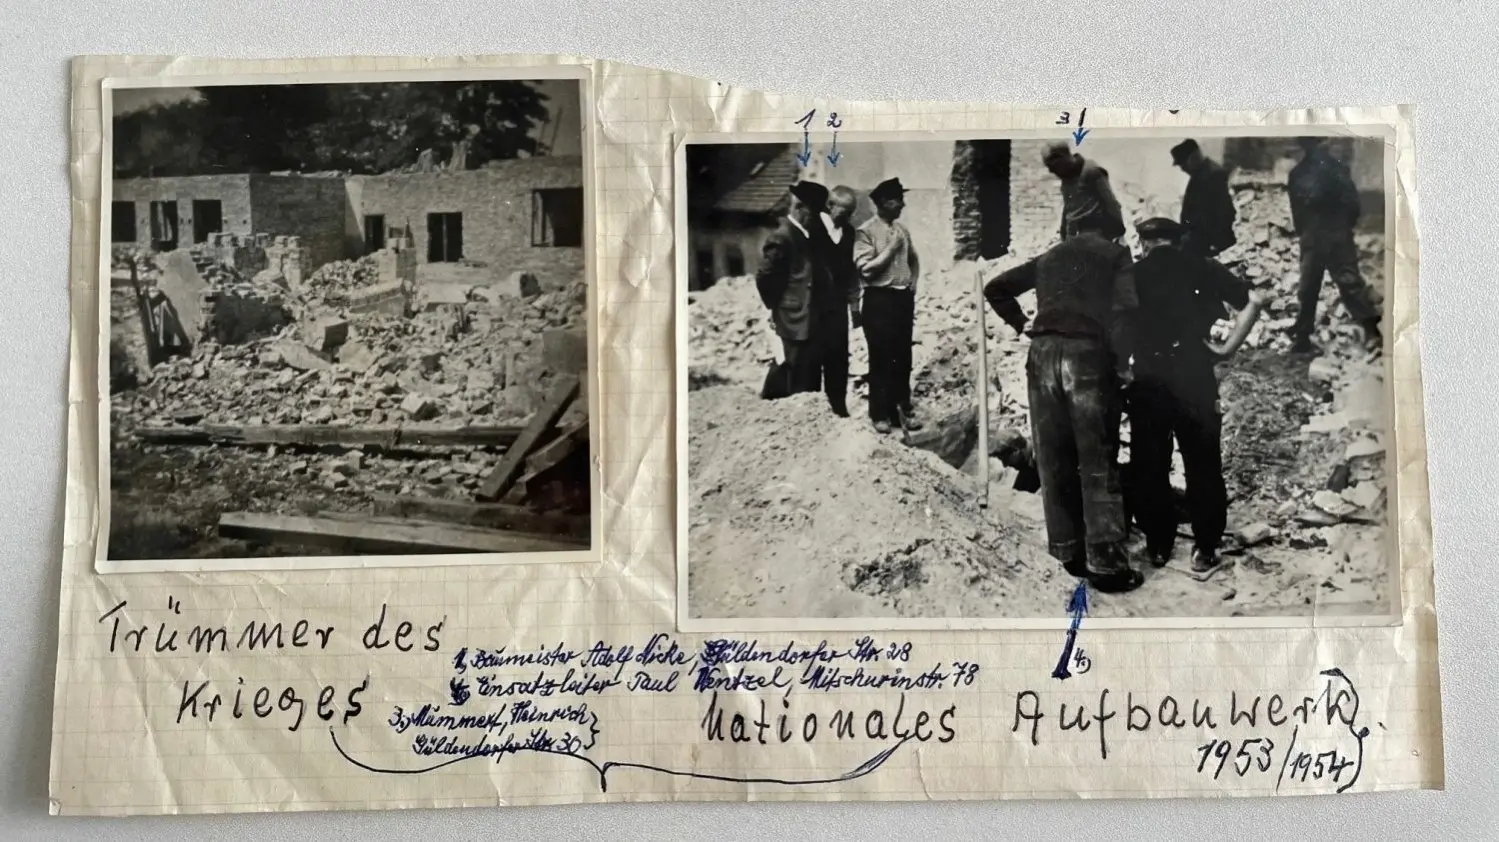 1 2
3
Trümmer des
Krieges
1, Baumeister Adolf Nicke, Güldendorfer Str. 28
4, Einsatzleiter Paul Wentzel, Mitschurinstr. 78
3.) Mummert, Heinrich
Güldendorfer Str. 30
4.)
Nationales Aufbauwerk.
1953/1954)